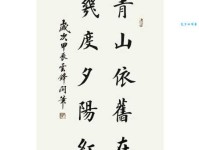 青山依舊在
幾度夕陽紅
歲次甲辰雲鋒閆葦